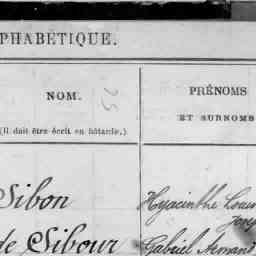 PHABÉTIQUE.
NOM.
(Il doit être écrit en bâtarde.)
PRÉNOMS
ET SURNOMS
25
Sibon
Hyacinthe Louis
de Sibour
Gabriel Armand